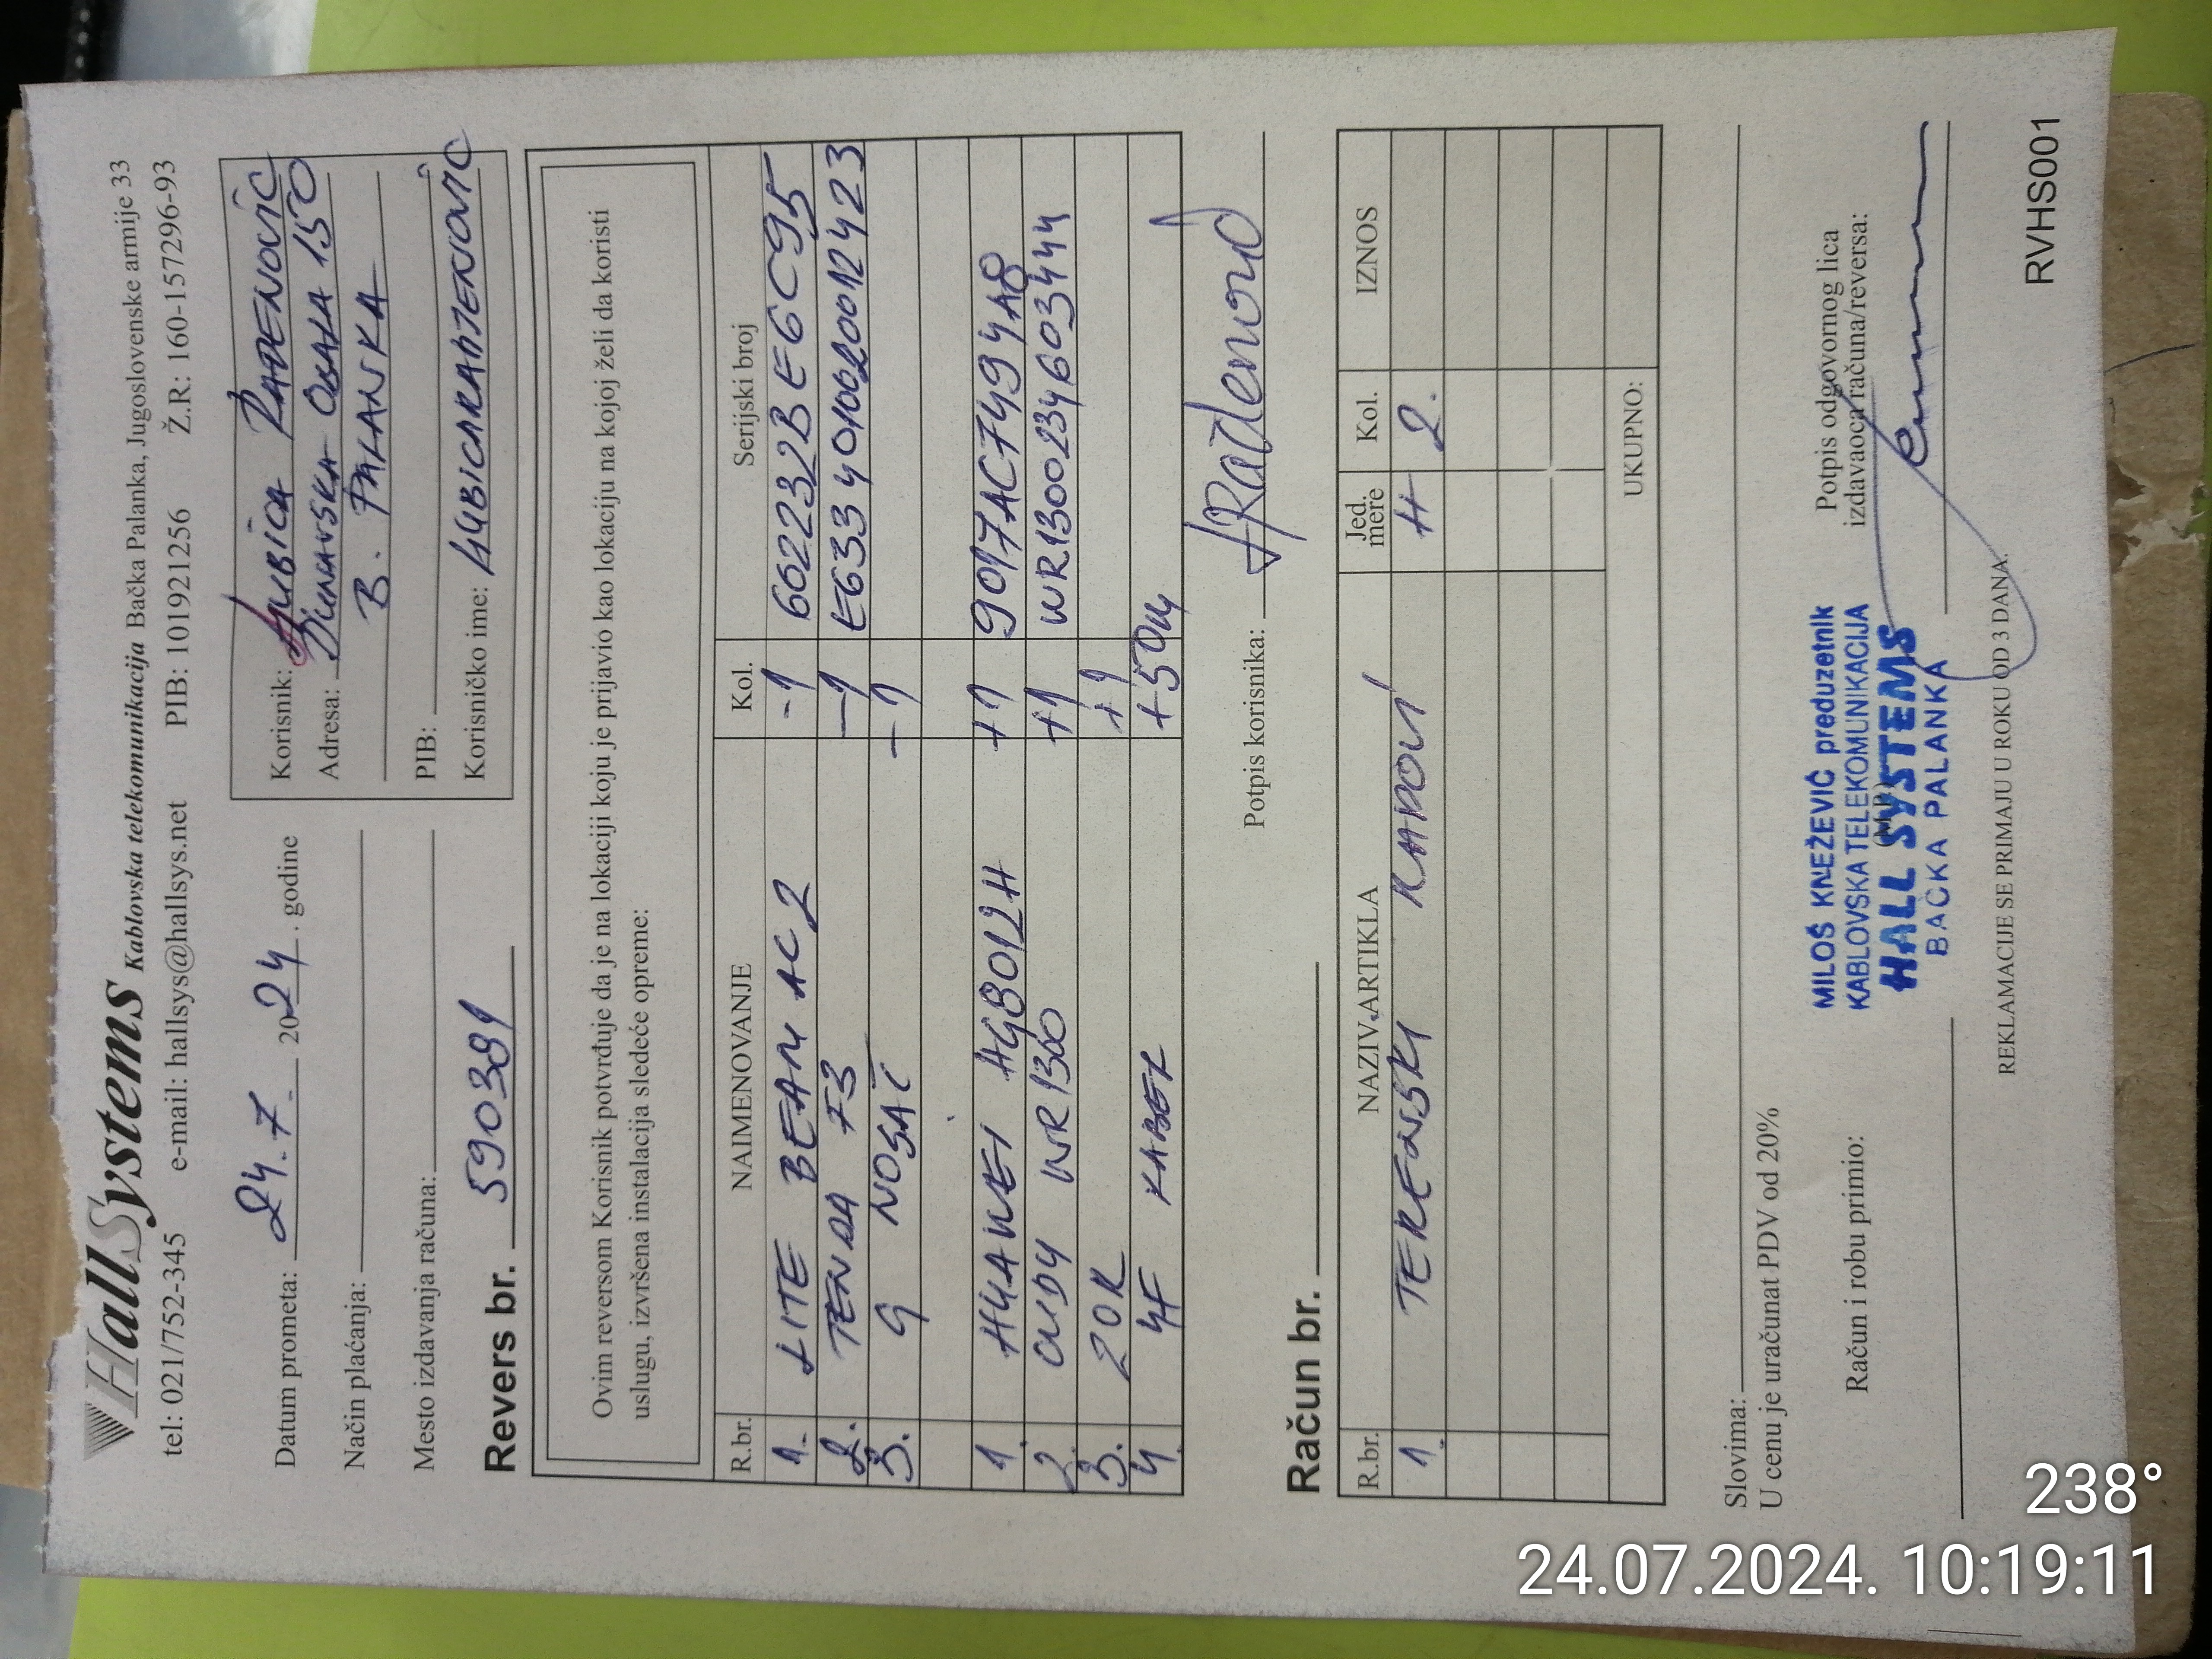 HallSystems Kablovska telekomunikacija Bačka Palanka, Jugoslovenske armije 33
tel: 021/752-345 e-mail: hallsys@hallsys.net PIB: 101921256 Ž.R: 160-157296-93
Datum prometa: 24.7. 2024. godine
Način plaćanja:
Mesto izdavanja računa:
Korisnik: LJUBICA RAĐENOVIĆ
Adresa: DUNAVSKA OBALA 150
B. PALANKA
PIB:
Korisničko ime: LJUBICARADJENOVIC
Revers br. 590389
Ovim reversom Korisnik potvrđuje da je na lokaciji koju je prijavio kao lokaciju na kojoj želi da koristi
uslugu, izvršena instalacija sledeće opreme:
R.br. NAIMENOVANJE Kol. Serijski broj
1. LITE BEAM AC 2 -1 602232BE6C95
2. TENDA F3 -1 E6334010020012423
3. G NOSAČ -1
1. HUAWEI HG8012H +1 9017AC7494A8
2. CUDY WR1300 +1 WR1300234603444
3. ZOK +1
4. 4F KABEL +50M
Potpis korisnika: LJRađenović
Račun br.
R.br. NAZIV ARTIKLA Jed. mere Kol. IZNOS
1. TERENSKI RADOVI H 2.
UKUPNO:
Slovima:
U cenu je uračunat PDV od 20%
Račun i robu primio:
MILOŠ KNEŽEVIĆ preduzetnik
KABLOVSKA TELEKOMUNIKACIJA
HALL SYSTEMS
BAČKA PALANKA
(M.P.)
Potpis odgovornog lica
izdavaoca računa/reversa:
REKLAMACIJE SE PRIMAJU U ROKU OD 3 DANA.
RVHS001
238°
24.07.2024. 10:19:11